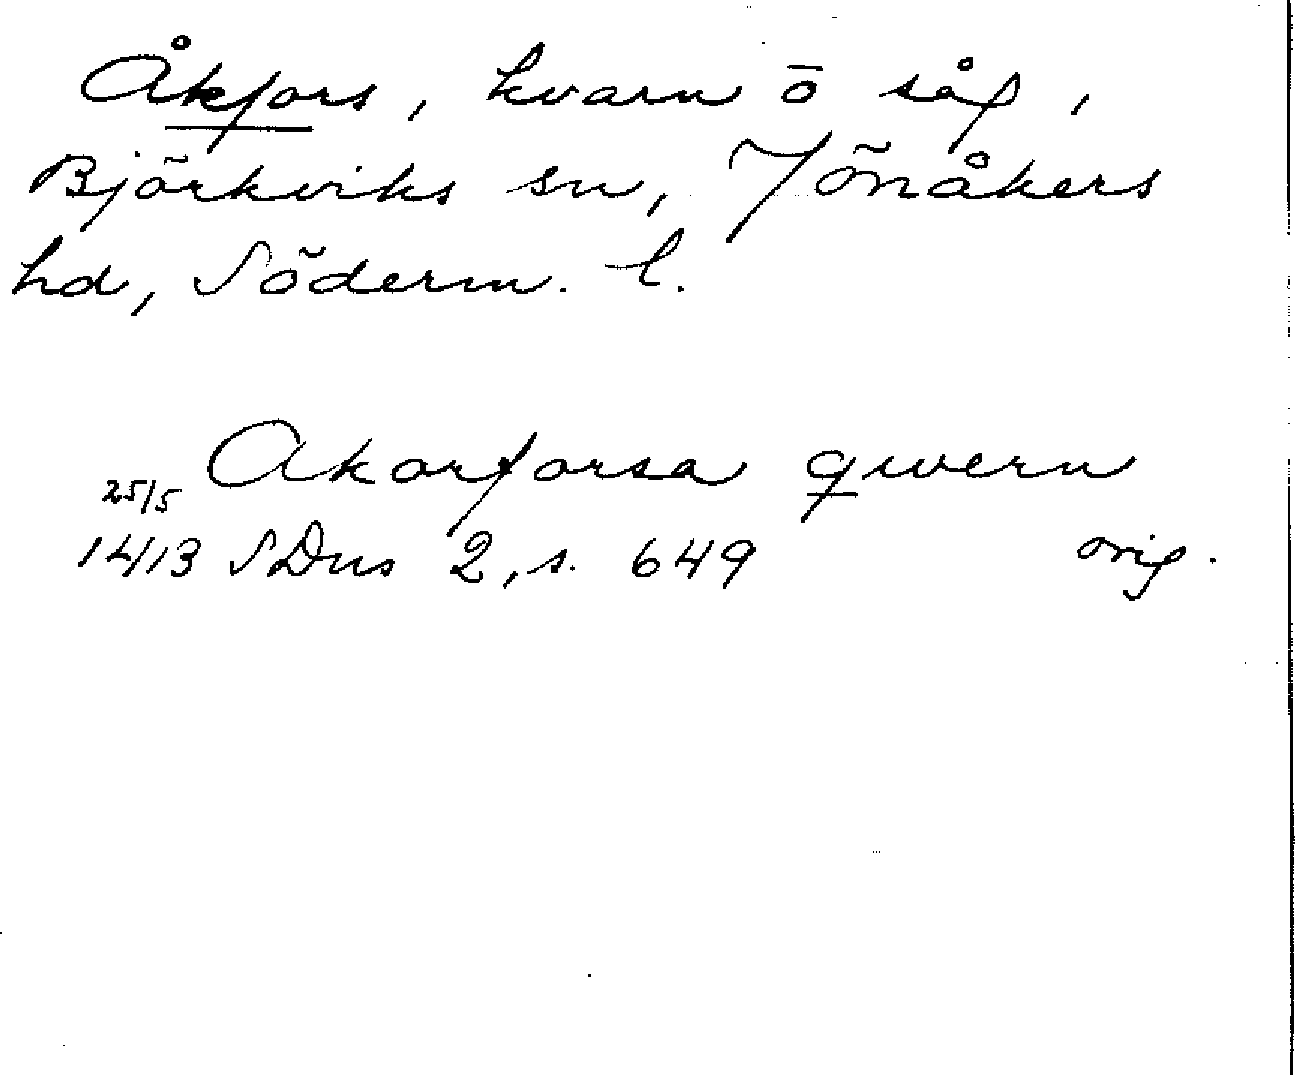 Åkfors, kvarn ō såg,
Björkviks sn, Jönåkers
hd, Söderm. l.
Akorforsa qwern
25/5
1413 SDns 2, s. 649 orig.